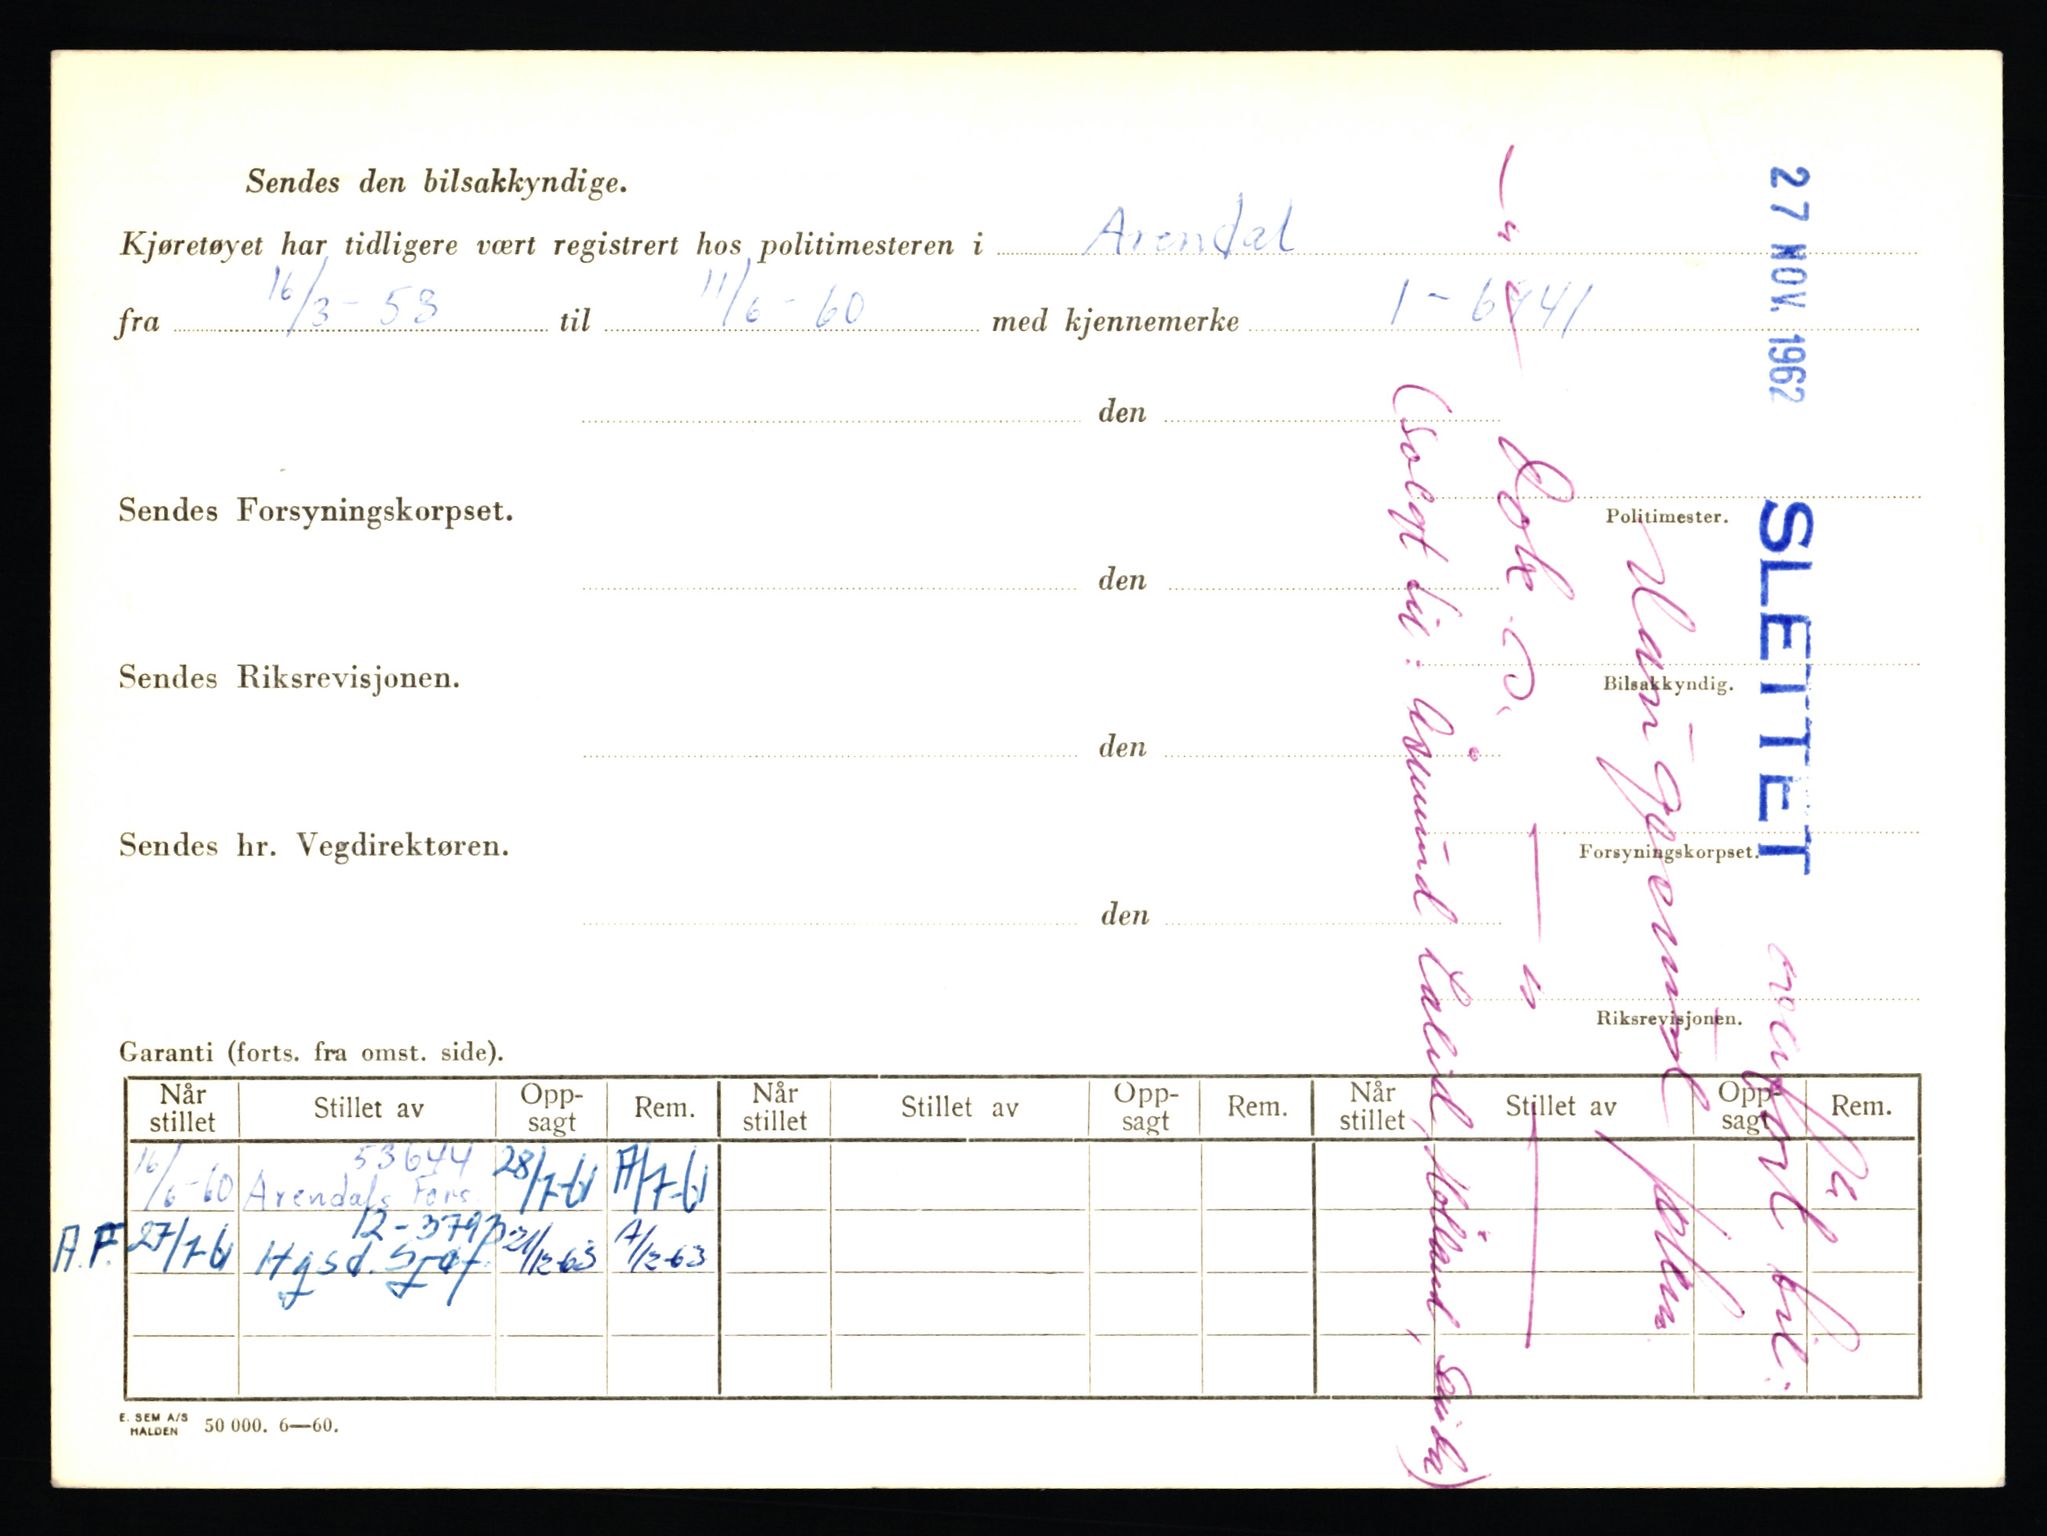 Sendes den bilsakkyndige.
Kjøretøyet har tidligere vært registrert hos politimesteren i Arendal
fra 16/3-58 til 11/6-60 med kjennemerke 1-6941
den
Politimester.
Sendes Forsyningskorpset.
den
Bilsakkyndig.
Sendes Riksrevisjonen.
den
Forsyningskorpset.
Sendes hr. Vegdirektøren.
den
Riksrevisjonen.
Garanti (forts. fra omst. side).
Når stillet Stillet av Opp-sagt Rem. Når stillet Stillet av Opp-sagt Rem. Når stillet Stillet av Opp-sagt Rem.
16/6-60 53644 Arendals Fors. 28/7-61 A/7-61
A.F. 27/7-61 12-3793 Hgsd. Sjøf. 21/12-63 A/12-63
E. SEM A/S
HALDEN
50 000. 6—60.
27 NOV. 1962
SLETTET
overført til:
(solgt til: Åsmund Lalid, Holland,